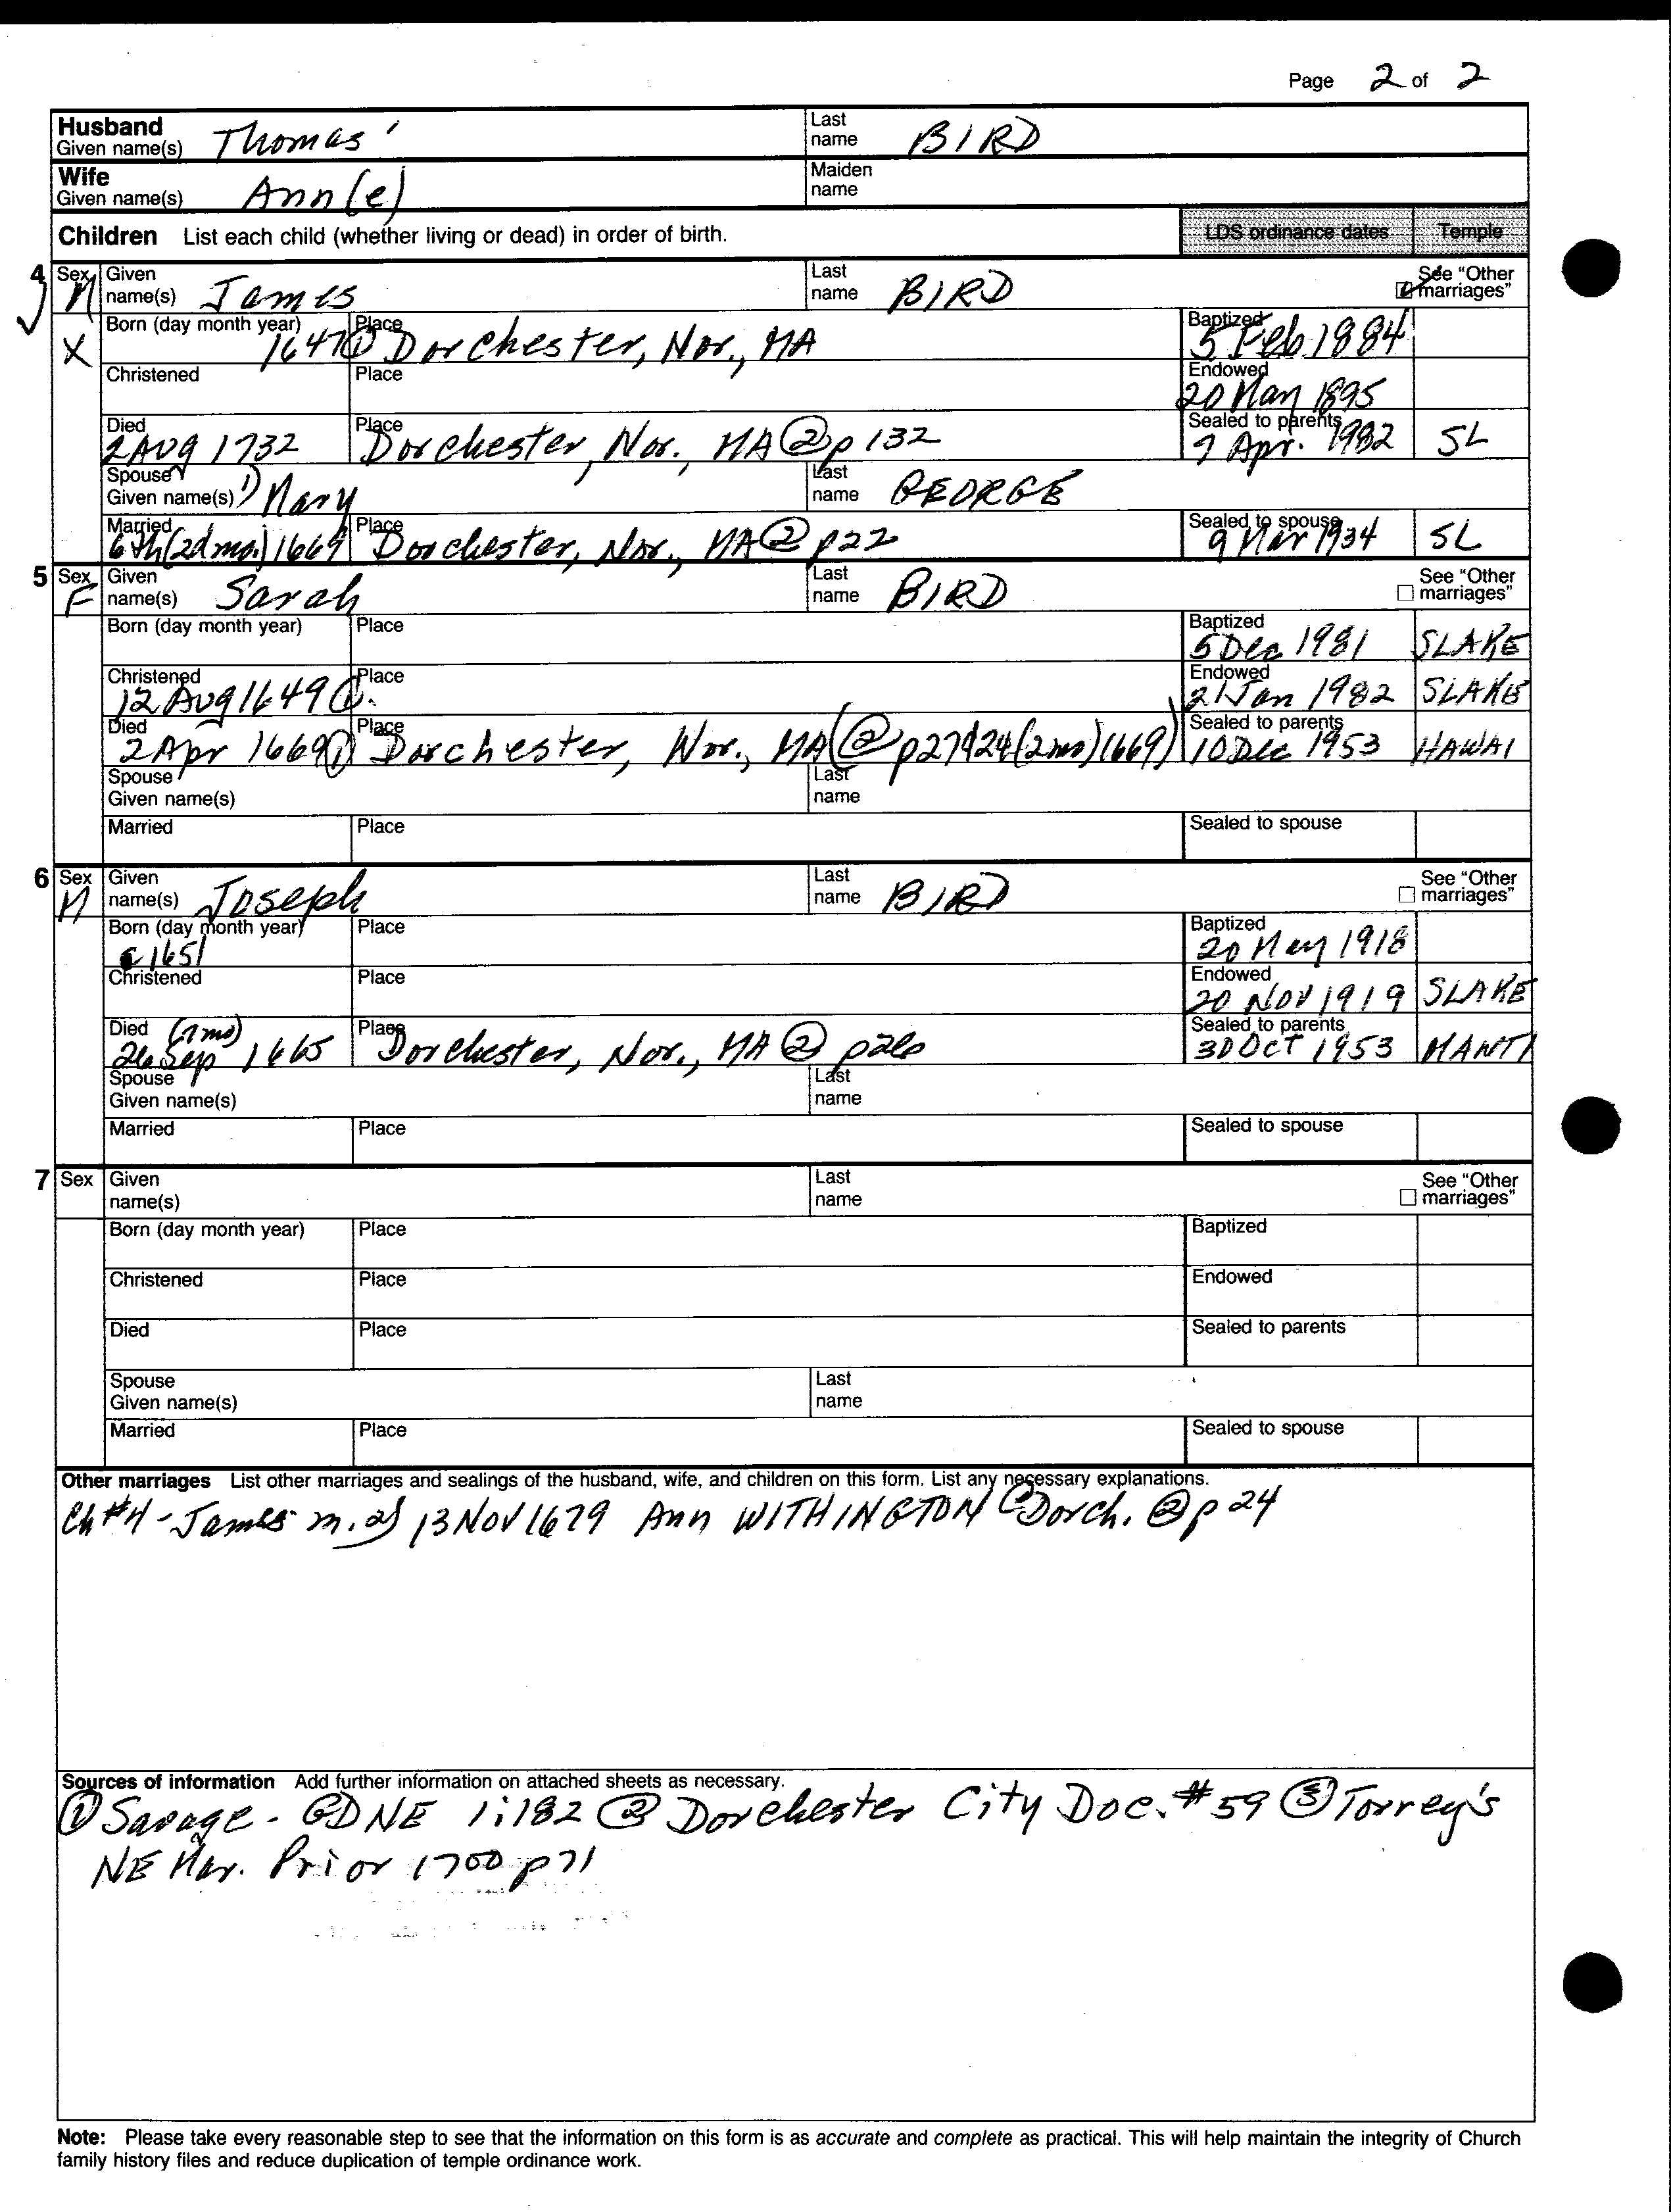 Page 2 of 2
Husband Given name(s) Thomas Last name BIRD
Wife Given name(s) Ann(e) Maiden name
Children List each child (whether living or dead) in order of birth. LDS ordinance dates Temple
4 Sex M Given name(s) James Last name BIRD See "Other marriages"
X Born (day month year) 1647 ① Place Dorchester, Nor., MA Baptized 5 Feb 1884
Christened Place Endowed 20 May 1895
Died 2 Aug 1732 Place Dorchester, Nor., MA ② p 132 Sealed to parents 7 Apr. 1982 SL
Spouse Given name(s) 1) Mary Last name GEORGE
Married 6th (2d mo.) 1669 Place Dorchester, Nor., MA ② p22 Sealed to spouse 9 Mar 1934 SL
5 Sex F Given name(s) Sarah Last name BIRD See "Other marriages"
Born (day month year) Place Baptized 5 Dec 1981 SLAKE
Christened 12 Aug 1649 ①. Place Endowed 21 Jan 1982 SLAKE
Died 2 Apr 1669 ① Place Dorchester, Nor., MA (② p27 24 (2mo) 1669) Sealed to parents 10 Dec 1953 HAWAI
Spouse Given name(s) Last name
Married Place Sealed to spouse
6 Sex M Given name(s) Joseph Last name BIRD See "Other marriages"
Born (day month year) c 1651 Place Baptized 20 May 1918
Christened Place Endowed 20 NOV 1919 SLAKE
Died (7mo) 26 Sep 1665 Place Dorchester, Nor., MA ② p26 Sealed to parents 30 Oct 1953 MANTI
Spouse Given name(s) Last name
Married Place Sealed to spouse
7 Sex Given name(s) Last name See "Other marriages"
Born (day month year) Place Baptized
Christened Place Endowed
Died Place Sealed to parents
Spouse Given name(s) Last name
Married Place Sealed to spouse
Other marriages List other marriages and sealings of the husband, wife, and children on this form. List any necessary explanations.
Ch #4 - James m. 2) 13 NOV 1679 Ann WITHINGTON @ Dorch. ② p 24
Sources of information Add further information on attached sheets as necessary.
① Savage - GDNE 1:182 ② Dorchester City Doc. #59 ③ Torrey's
NE Mar. Prior 1700 p71
Note: Please take every reasonable step to see that the information on this form is as accurate and complete as practical. This will help maintain the integrity of Church
family history files and reduce duplication of temple ordinance work.